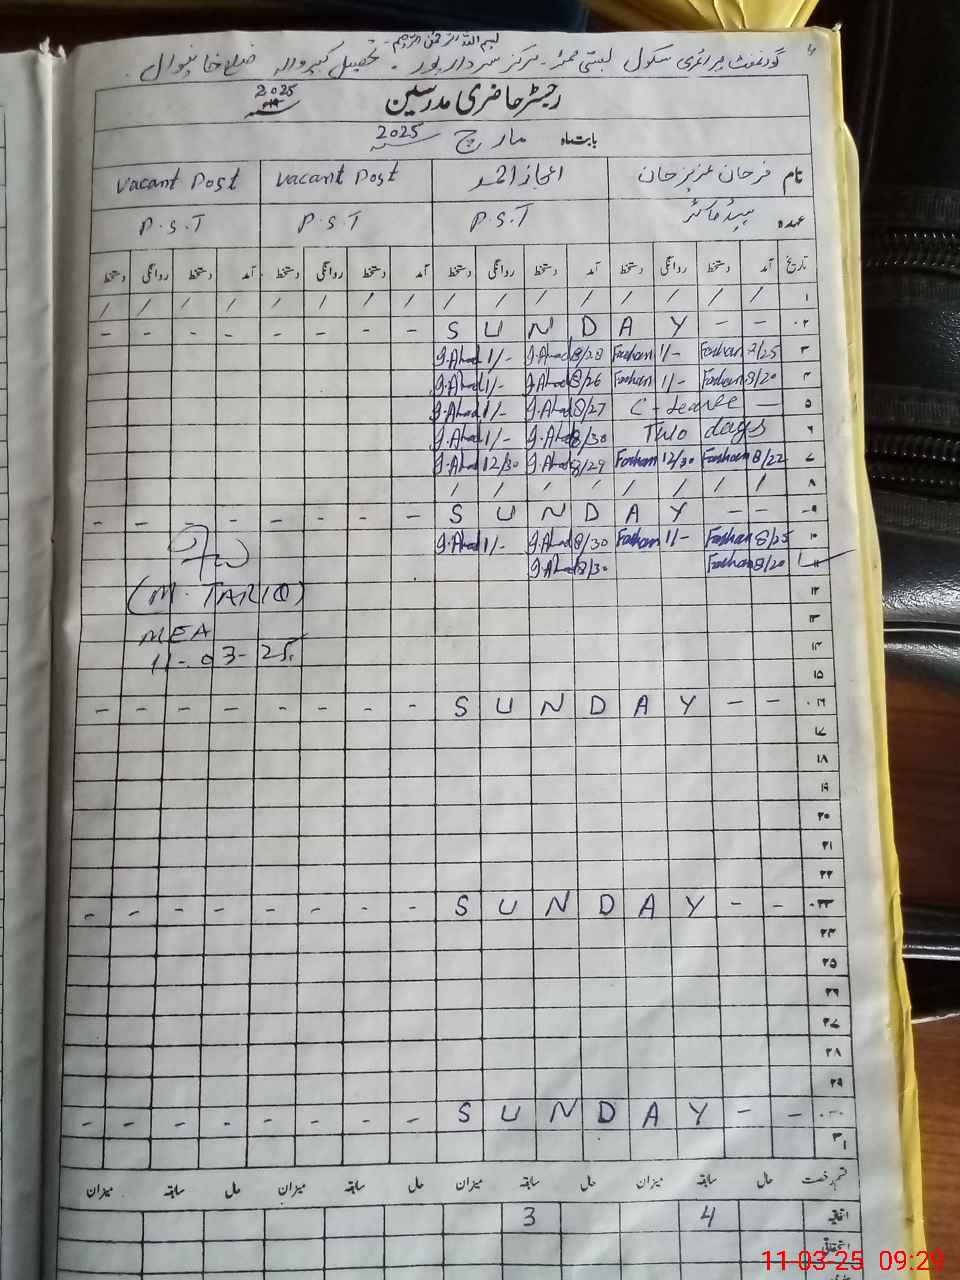 بسم اللہ الرحمن الرحیم
گورنمنٹ پرائمری سکول بستی - مرکز سردارپور - تحصیل کبیروالہ ضلع خانیوال
رجسٹر حاضری مدرسین 2025
بابت ماہ مارچ 2025
نام فرحان عزیز خان اعجاز احمد Vacant Post Vacant Post
عہدہ ہیڈ ماسٹر P.S.T P.S.T P.S.T
تاریخ آمد دستخط روانگی دستخط آمد دستخط روانگی دستخط آمد دستخط روانگی دستخط آمد دستخط روانگی دستخط
۱ / / / / / / / / / / / / / / / /
۲ - - - - - - - - S U N D A Y - -
۳ 8/25 Farhan 1/- Farhan 8/28 I.Ahmad 1/- I.Ahmad
۴ 8/20 Farhan 1/- Farhan 8/26 I.Ahmad 1/- I.Ahmad
۵ C-leave — 8/27 I.Ahmad 1/- I.Ahmad
۶ Two days 8/30 I.Ahmad 1/- I.Ahmad
۷ 8/22 Farhan 12/30 Farhan 8/29 I.Ahmad 12/30 I.Ahmad
۸ / / / / / / / /
۹ - - - - - - - - S U N D A Y - -
۱۰ 8/25 Farhan 1/- Farhan 8/30 I.Ahmad 1/- I.Ahmad
۱۱ 8/20 Farhan 8/30 I.Ahmad
۱۲
(M. TARIQ)
۱۳
MEA
۱۴
11-03-25
۱۵
۱۶ - - - - - - - - S U N D A Y - -
۱۷
۱۸
۱۹
۲۰
۲۱
۲۲
۲۳ - - - - - - - - S U N D A Y - -
۲۴
۲۵
۲۶
۲۷
۲۸
۲۹
۳۰ - - - - - - - - S U N D A Y - -
۳۱
قسم رخصت حال سابقہ میزان حال سابقہ میزان حال سابقہ میزان حال سابقہ میزان
اتفاقیہ 4 3
استحقاقی
11-03-25 09:29